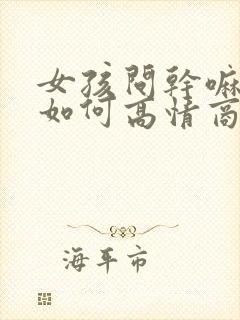 女孩問幹嘛
如何高情商
海平市